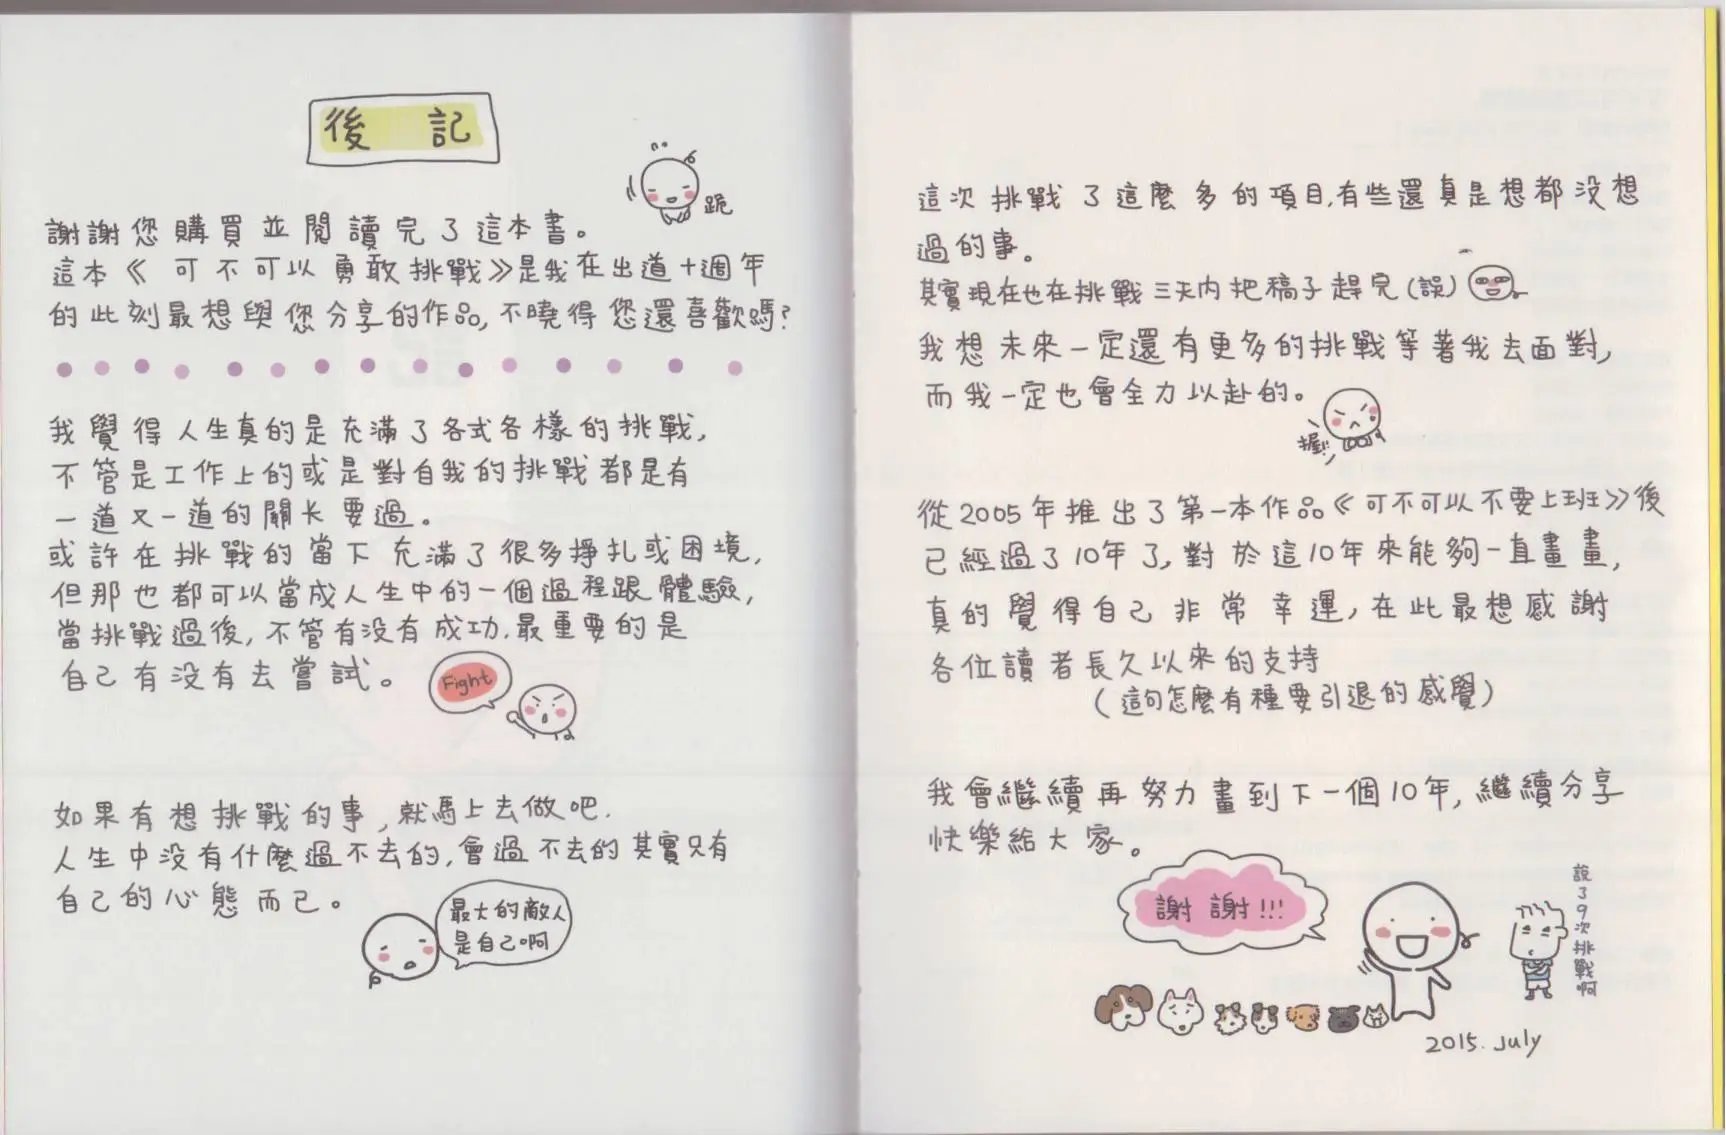 後 記
跪
謝謝您購買並閱讀完了這本書。
這本《可不可以勇敢挑戰》是我在出道十週年
的此刻最想與您分享的作品,不曉得您還喜歡嗎?
我覺得人生真的是充滿了各式各樣的挑戰,
不管是工作上的或是對自我的挑戰都是有
一道又一道的關長要過。
或許在挑戰的當下充滿了很多掙扎或困境,
但那也都可以當成人生中的一個過程跟體驗,
當挑戰過後,不管有沒有成功.最重要的是
自己有沒有去嘗試。
Fight
如果有想挑戰的事,就馬上去做吧.
人生中沒有什麼過不去的,會過不去的其實只有
自己的心態而已。
最大的敵人
是自己啊
這次挑戰了這麼多的項目,有些還真是想都沒想
過的事。
其實現在也在挑戰三天內把稿子趕完(誤)
我想未來一定還有更多的挑戰等著我去面對,
而我一定也會全力以赴的。
握!!
從2005年推出了第一本作品《可不可以不要上班》後
已經過了10年了,對於這10年來能夠一直畫畫,
真的覺得自己非常幸運,在此最想感謝
各位讀者長久以來的支持
(這句怎麼有種要引退的感覺)
我會繼續再努力畫到下一個10年,繼續分享
快樂給大家。
謝謝!!!
說了9次挑戰啊
2015. July